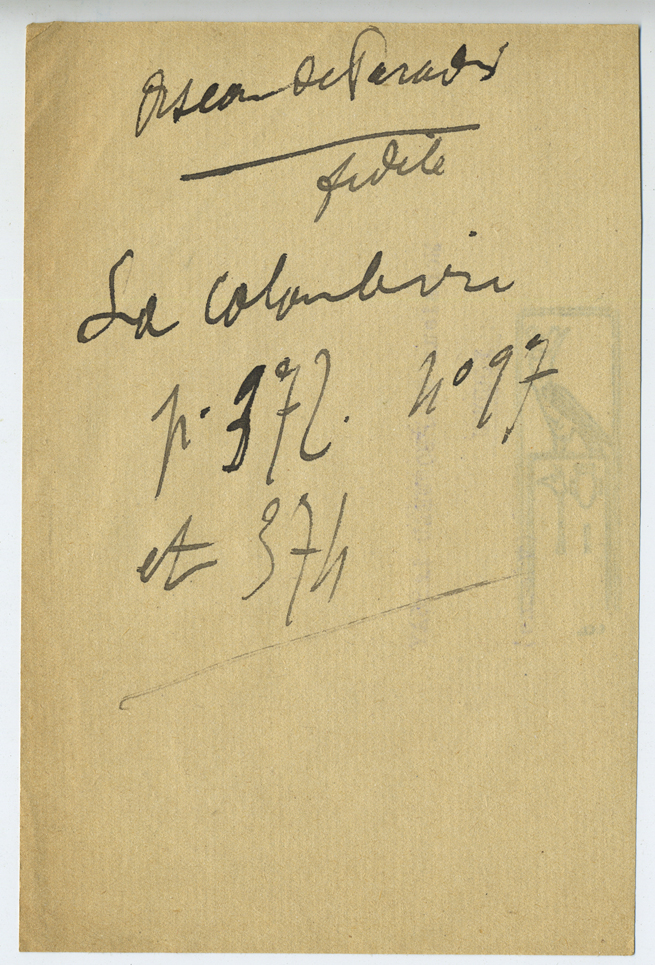 Oiseau de Paradis
fidele
La Colombiere
p. 372. no 97
et 374